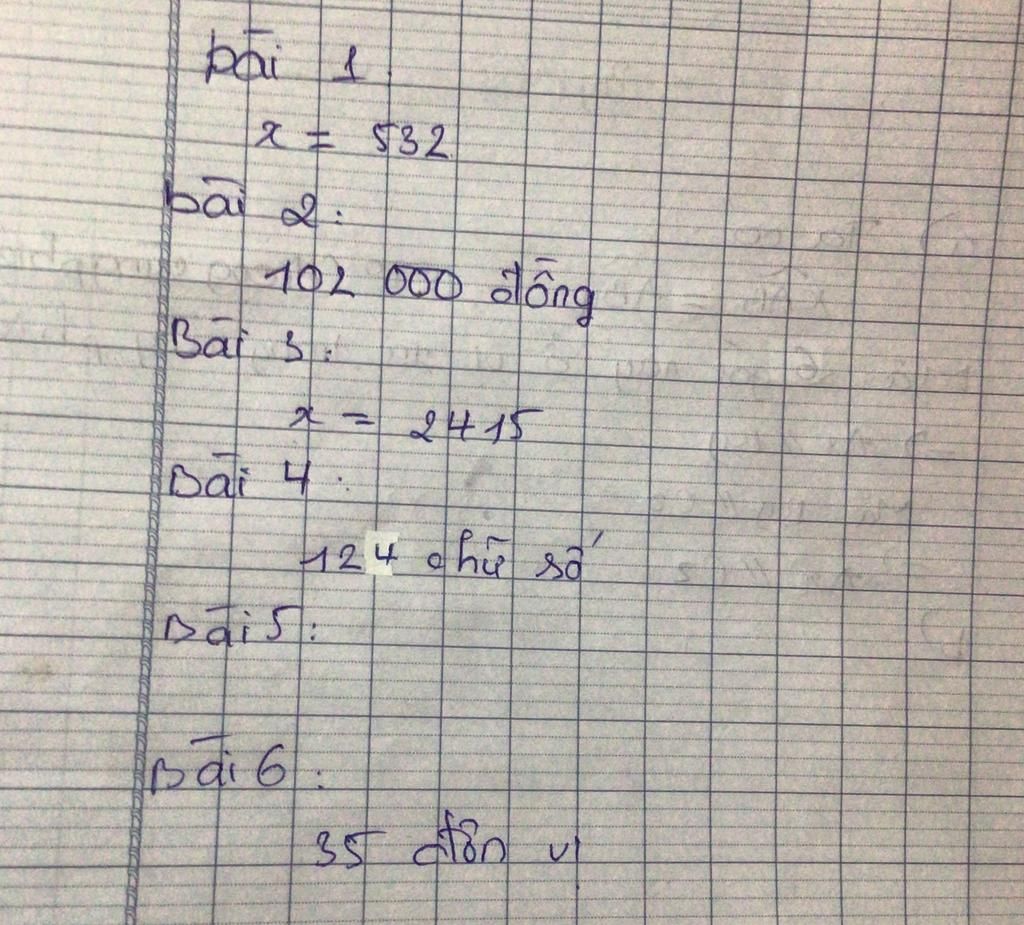 bài 1
x = 532
bài 2:
102 000 đồng
Bài 3:
x = 2415
Bài 4:
124 chữ số
Bài 5:
Bài 6:
35 đơn vị